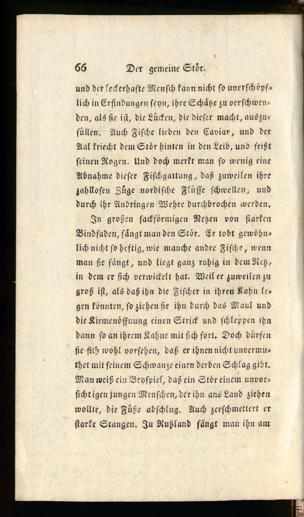 66 Der gemeine Stör.
und der leckerhafte Mensch kann nicht so unerschöpf-
lich in Erfindungen seyn, ihre Schätze zu verschwen-
den, als sie ist, die Lücken, die dieser macht, auszu-
füllen. Auch Fische lieben den Caviar, und der
Aal kriecht dem Stör hinten in den Leib, und frißt
seinen Rogen. Und doch merkt man so wenig eine
Abnahme dieser Fischgattung, daß zuweilen ihre
zahllosen Züge nordische Flüsse schwellen, und
durch ihr Andringen Wehre durchbrochen werden.
In großen sackförmigen Netzen von starken
Bindfaden, fängt man den Stör. Er tobt gewöhn-
lich nicht so heftig, wie manche andre Fische, wenn
man sie fängt, und liegt ganz ruhig in dem Netz,
in dem er sich verwickelt hat. Weil er zuweilen zu
groß ist, als daß ihn die Fischer in ihren Kahn le-
gen könnten, so ziehen sie ihn durch das Maul und
die Kiemenöffnung einen Strick und schleppen ihn
dann so an ihrem Kahne mit sich fort. Doch dürfen
sie sich wohl vorsehen, daß er ihnen nicht unvermu-
thet mit seinem Schwanze einen derben Schlag gibt.
Man weiß ein Beyspiel, daß ein Stör einem unvor-
sichtigen jungen Menschen, der ihn ans Land ziehen
wollte, die Füße abschlug. Auch zerschmettert er
starke Stangen. In Rußland fängt man ihn am